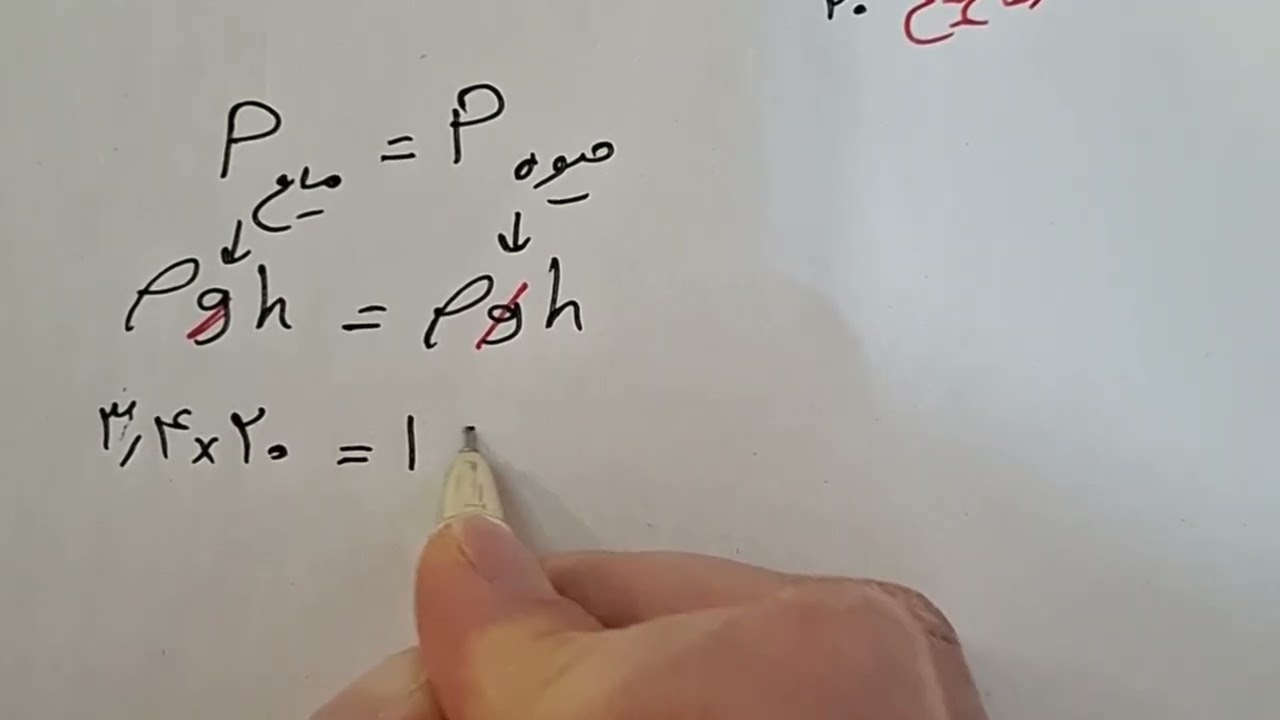 ۲۰ مایع
P مایع = P جیوه
↓ ↓
ρgh = ρgh
۳٫۴×۲۰ = ۱